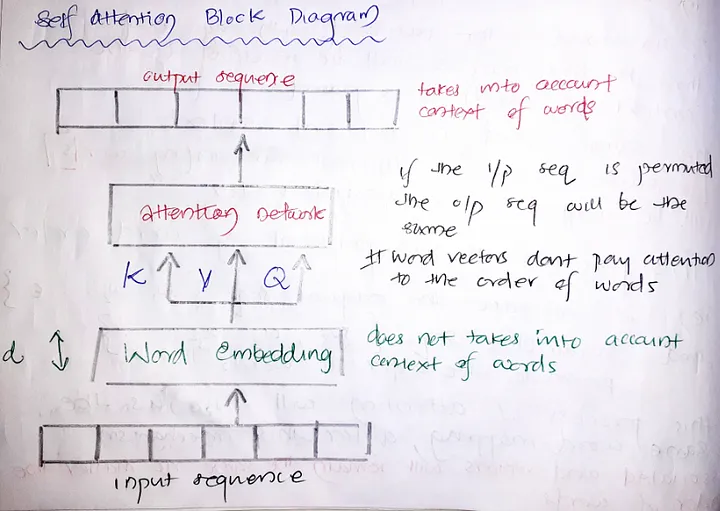 Self Attention Block Diagram
output sequence
takes into account
context of words
attention network
if the i/p seq is permuted
the o/p seq will be the
same
# word vectors dont pay attention
to the order of words
K V Q
d
Word embedding
does not takes into account
context of words
input sequence